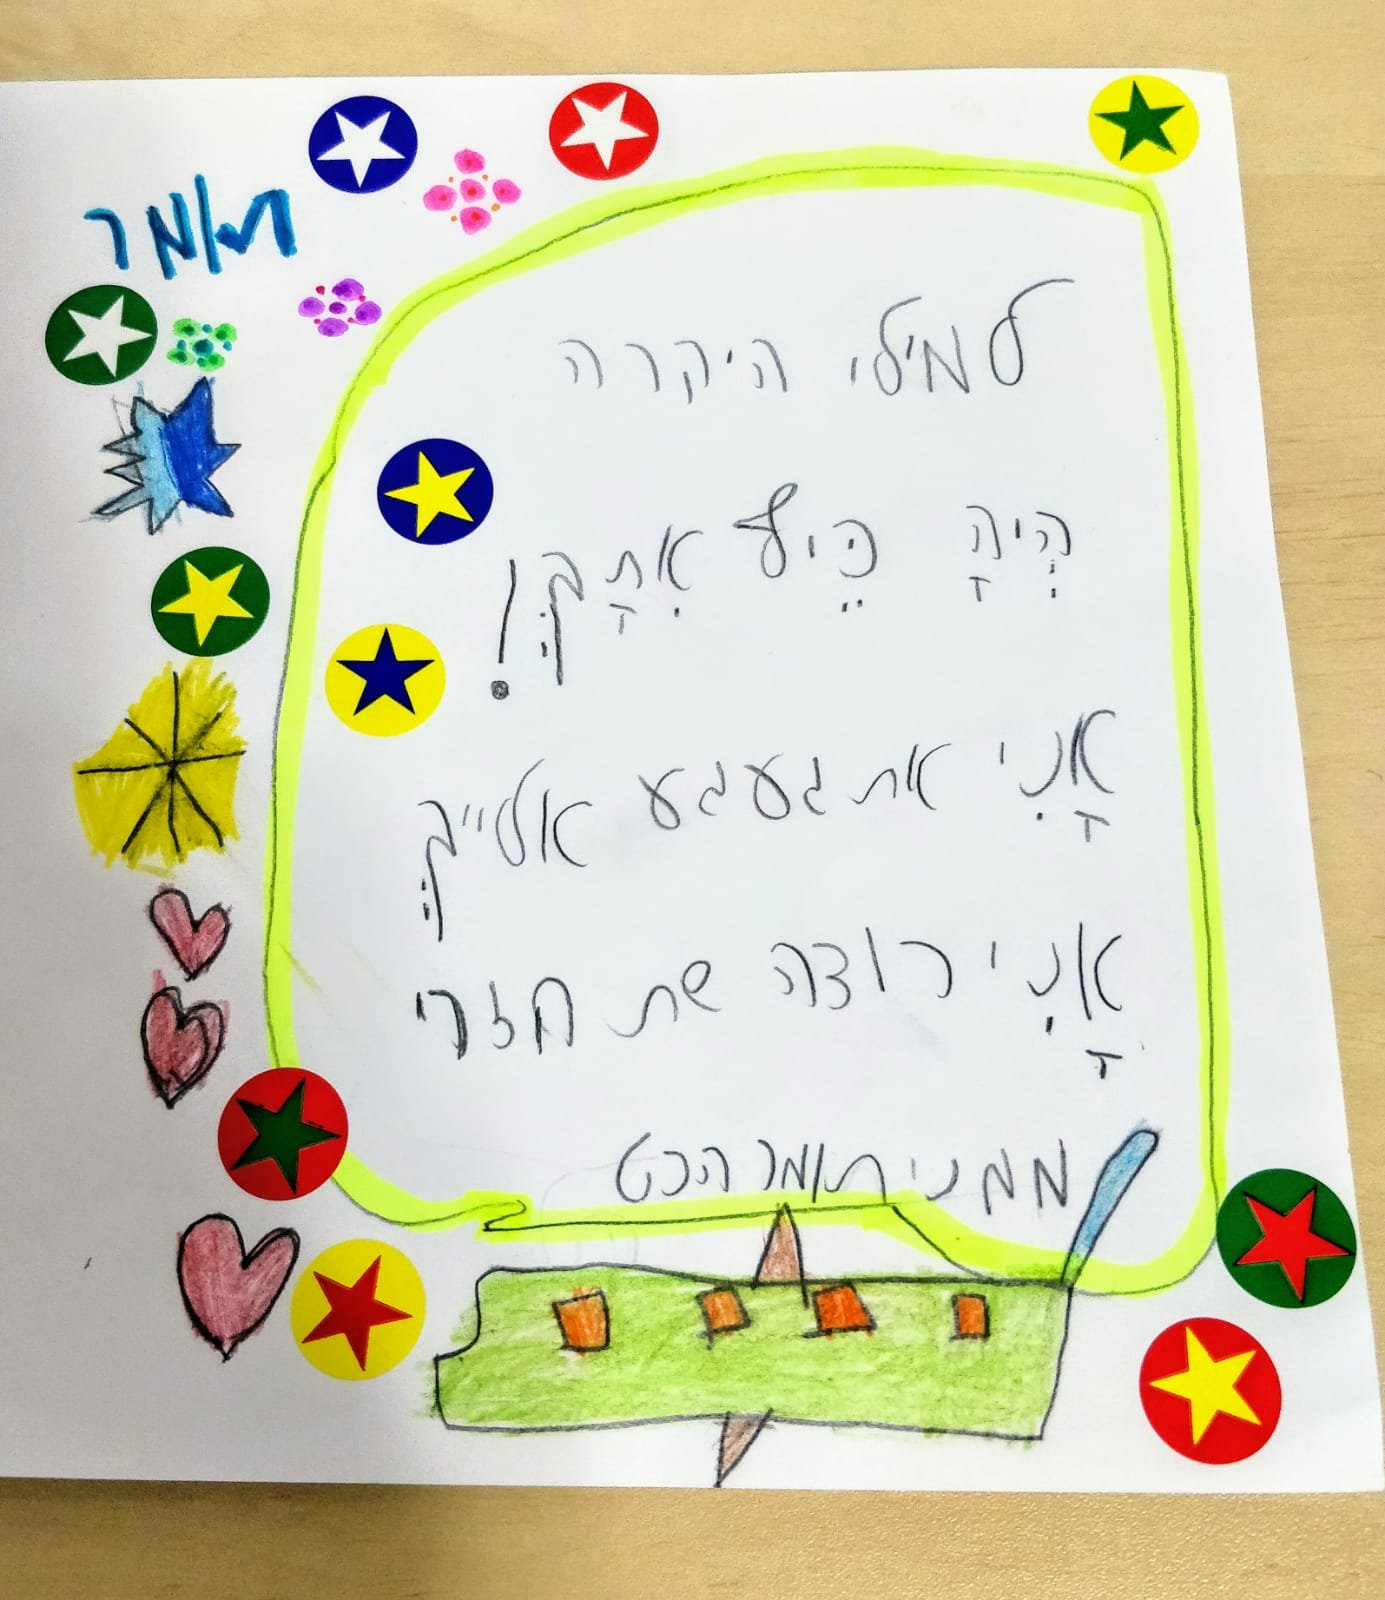 תומר
למילי היקרה
הְיהָ כֵּיף אִתָךְ!
אָנִי את געגע אלייךְ
אָנִי רוצה שת חזרי
ממני תומר הכט